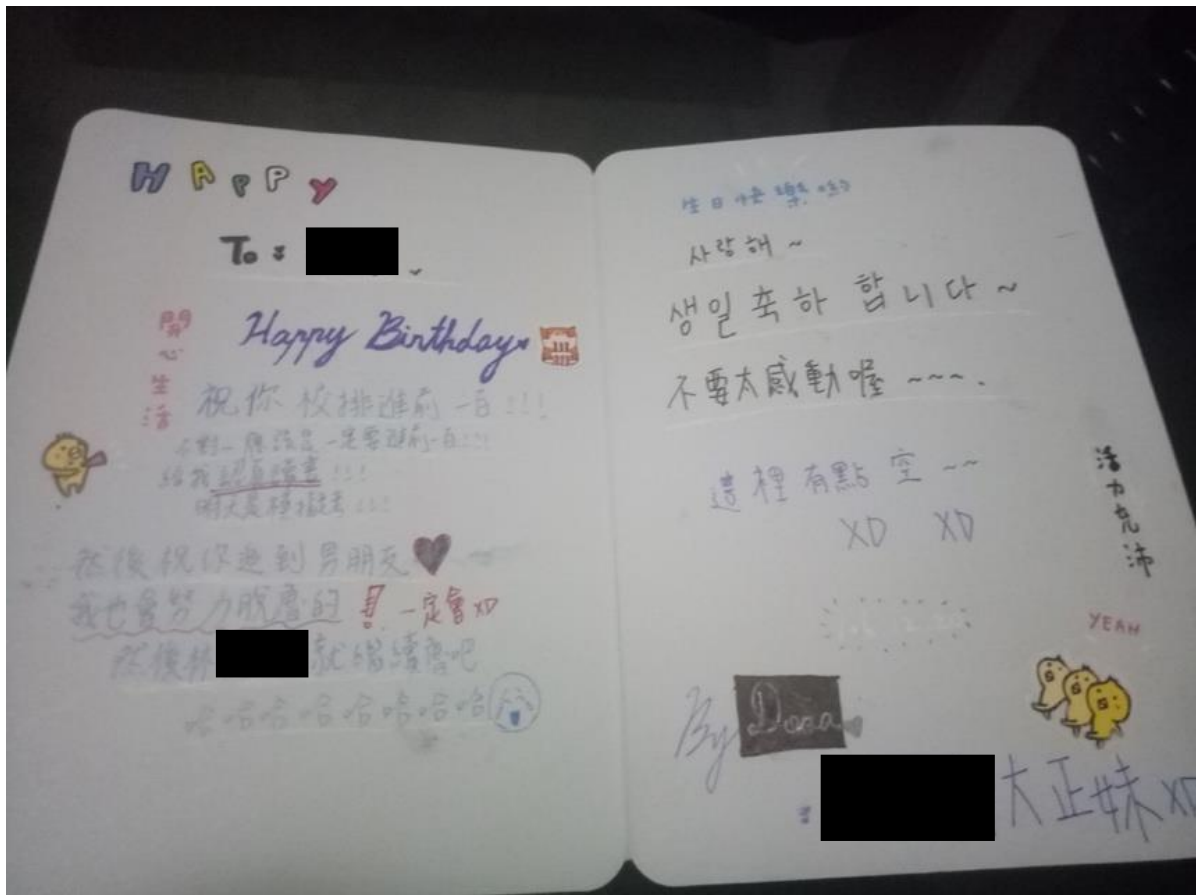 HAPPY
To:
開心生活
Happy Birthday
祝你校排進前一百!!!
不對~應該是一定要進前一百!!!
給我認真讀書!!!
明天是模擬考!!!
然後祝你追到男朋友
我也會努力脫魯的! 一定會XD
然後林
就繼續魯吧
哈哈哈哈哈哈哈哈
生日快樂
사랑해~
생일축하 합니다~
不要太感動喔~~~.
這裡有點空~~
XD XD
活力充沛
YEAH
By Dora
大正妹XD